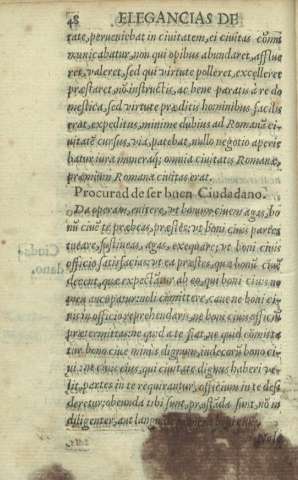 48 ELEGANCIAS DE
tate, perueniebat in ciuitatem, ei ciuitas cōmu
nicabatur, non qui opibus abundaret, afflue
ret, valeret, sed qui virtute polleret, excelleret
præstaret, nō instructis, ac bene paratis à re do
mestica, sed virtute præditis hominibus facilis
erat, expeditus, minime dubius ad Romanā ci-
uitatē cursus, via, patebat, nullo negotio aperie
batur iura muneraq; omnia ciuitatis Romanæ,
præmium Romana ciuitas erat.
Procurad de ser buen Ciudadano.
Da operam, enitere, vt bonum ciuem agas, bo
nū ciuē te præbeas, præstes; vt boni ciuis partes
tueare, sustineas, agas, exequare; vt boni ciuis
officio satisfacias; vt ea præstes, quæ bonū ciuē
decent, quæ expectātur ab eo, qui boni ciuis no
men aucupatur: noli committere, caue ne boni ci-
uis in officio reprehendaris, ne boni ciuis officiū
prætermittas: ne quid à te fiat, ne quid committa
tur bono ciue minus dignum, indecorū bono ci-
ui: vt ciuis eius, qui ciuitate dignus haberi ve-
lit, partes in te requirantur, officium in te desi
deretur; obeunda tibi sunt, præstāda sunt, nō in
diligenter, aut languide munera boni ciuis.
Nole
Ciuda-
dano.